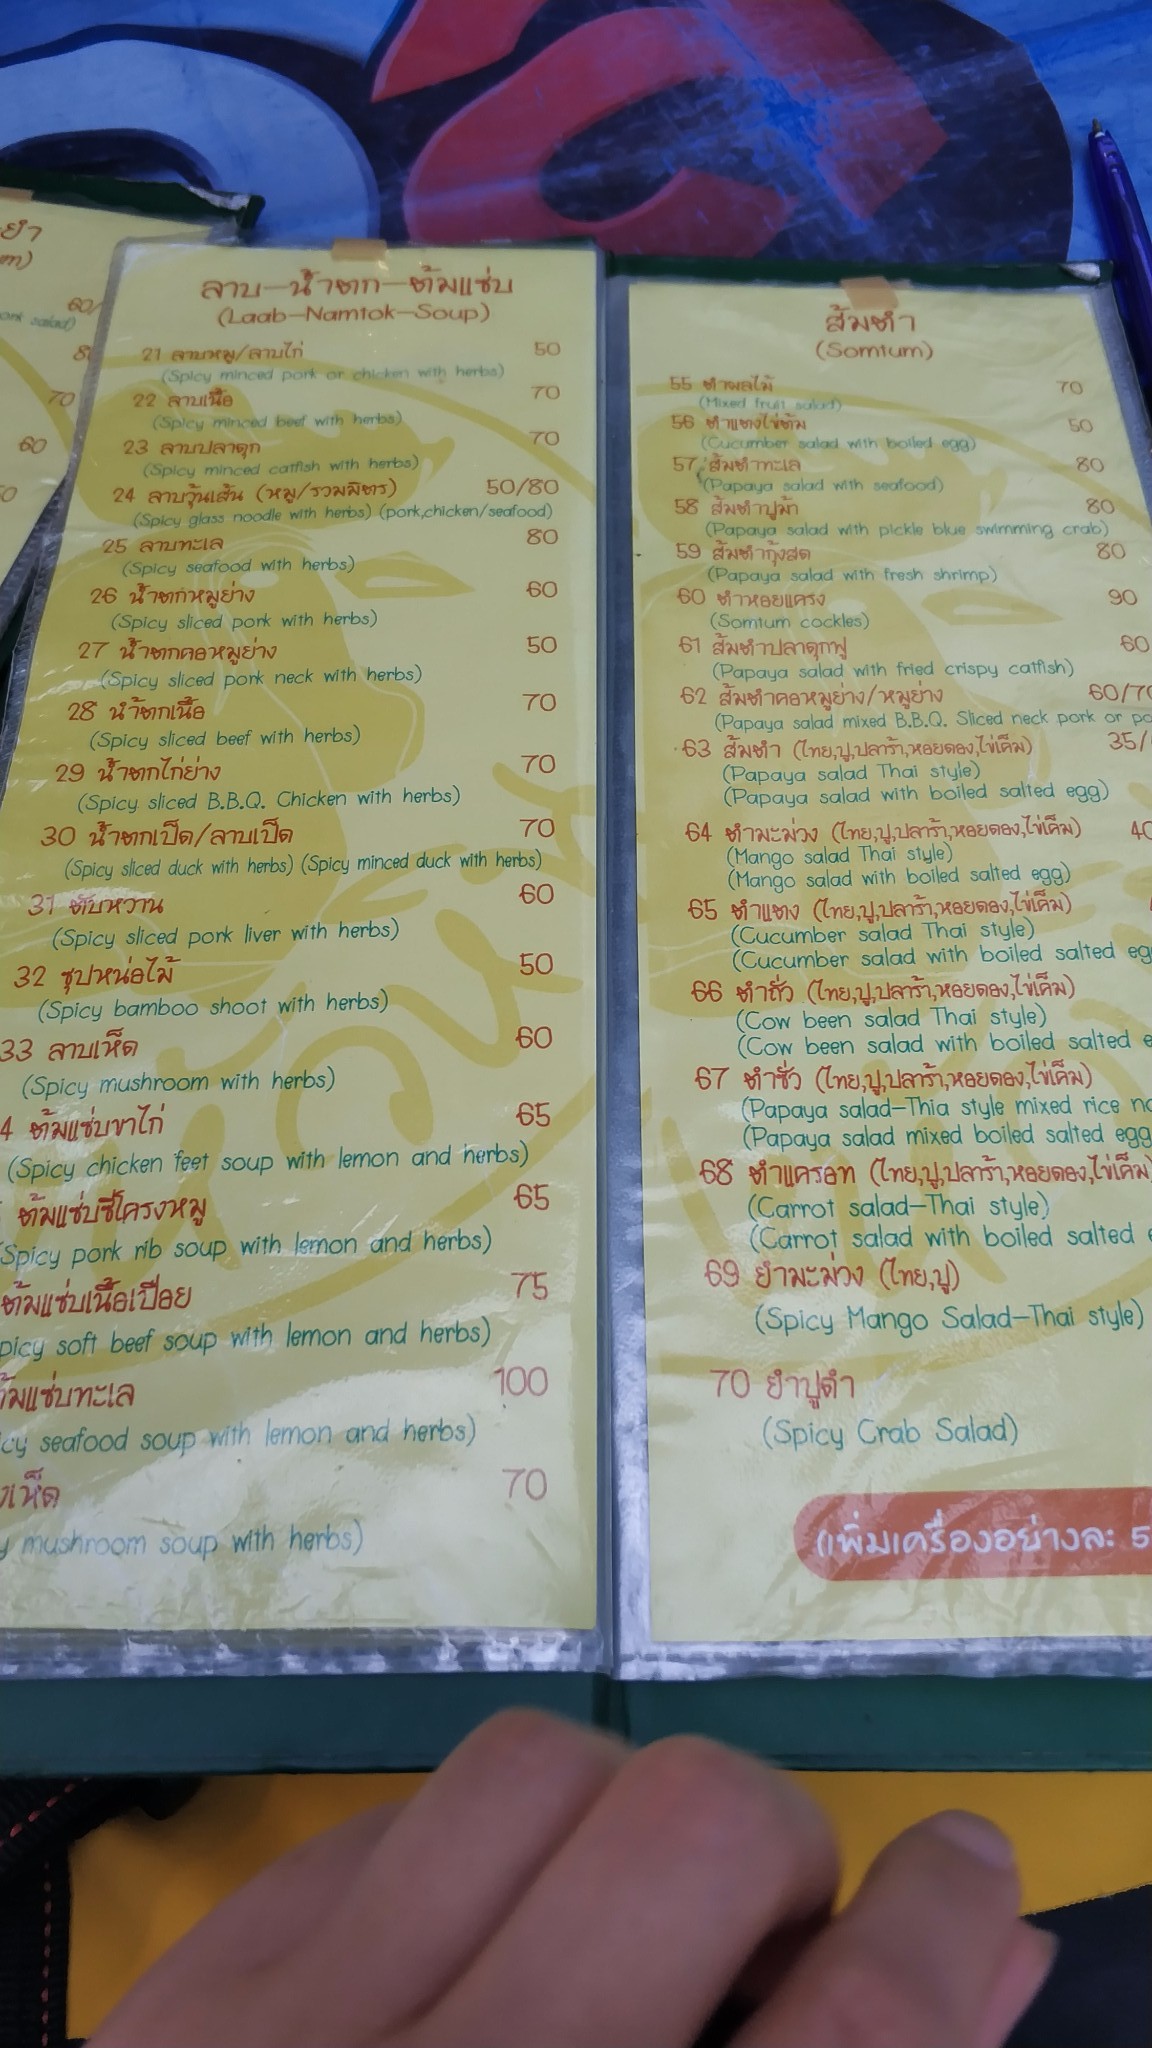 ลาบ-น้ำตก-ต้มแซ่บ
(Laab-Namtok-Soup)
21 ลาบหมู/ลาบไก่ 50
(Spicy minced pork or chicken with herbs)
22 ลาบเนื้อ 70
(Spicy minced beef with herbs)
23 ลาบปลาดุก 70
(Spicy minced catfish with herbs)
24 ลาบวุ้นเส้น (หมู/รวมมิตร) 50/80
(Spicy glass noodle with herbs) (pork,chicken/seafood)
25 ลาบทะเล 80
(Spicy seafood with herbs)
26 น้ำตกหมูย่าง 60
(Spicy sliced pork with herbs)
27 น้ำตกคอหมูย่าง 50
(Spicy sliced pork neck with herbs)
28 น้ำตกเนื้อ 70
(Spicy sliced beef with herbs)
29 น้ำตกไก่ย่าง 70
(Spicy sliced B.B.Q. Chicken with herbs)
30 น้ำตกเป็ด/ลาบเป็ด 70
(Spicy sliced duck with herbs) (Spicy minced duck with herbs)
31 ตับหวาน 60
(Spicy sliced pork liver with herbs)
32 ซุปหน่อไม้ 50
(Spicy bamboo shoot with herbs)
33 ลาบเห็ด 60
(Spicy mushroom with herbs)
4 ต้มแซ่บขาไก่ 65
(Spicy chicken feet soup with lemon and herbs)
ต้มแซ่บซี่โครงหมู 65
(Spicy pork rib soup with lemon and herbs)
ต้มแซ่บเนื้อเปื่อย 75
picy soft beef soup with lemon and herbs)
ต้มแซ่บทะเล 100
cy seafood soup with lemon and herbs)
เห็ด 70
y mushroom soup with herbs)
ส้มตำ
(Somtum)
55 ตำผลไม้ 70
(Mixed fruit salad)
56 ตำแตงไข่ต้ม 50
(Cucumber salad with boiled egg)
57 ส้มตำทะเล 80
(Papaya salad with seafood)
58 ส้มตำปูม้า 80
(Papaya salad with pickle blue swimming crab)
59 ส้มตำกุ้งสด 80
(Papaya salad with fresh shrimp)
60 ตำหอยแครง 90
(Somtum cockles)
61 ส้มตำปลาดุกฟู 60
(Papaya salad with fried crispy catfish)
62 ส้มตำคอหมูย่าง/หมูย่าง 60/70
(Papaya salad mixed B.B.Q. Sliced neck pork or po
63 ส้มตำ (ไทย,ปู,ปลาร้า,หอยดอง,ไข่เค็ม) 35/
(Papaya salad Thai style)
(Papaya salad with boiled salted egg)
64 ตำมะม่วง (ไทย,ปู,ปลาร้า,หอยดอง,ไข่เค็ม) 40
(Mango salad Thai style)
(Mango salad with boiled salted egg)
65 ตำแตง (ไทย,ปู,ปลาร้า,หอยดอง,ไข่เค็ม)
(Cucumber salad Thai style)
(Cucumber salad with boiled salted eg
66 ตำถั่ว (ไทย,ปู,ปลาร้า,หอยดอง,ไข่เค็ม)
(Cow been salad Thai style)
(Cow been salad with boiled salted e
67 ตำซั่ว (ไทย,ปู,ปลาร้า,หอยดอง,ไข่เค็ม)
(Papaya salad-Thia style mixed rice no
(Papaya salad mixed boiled salted egg
68 ตำแครอท (ไทย,ปู,ปลาร้า,หอยดอง,ไข่เค็ม)
(Carrot salad-Thai style)
(Carrot salad with boiled salted e
69 ยำมะม่วง (ไทย,ปู)
(Spicy Mango Salad-Thai style)
70 ยำปูดำ
(Spicy Crab Salad)
(เพิ่มเครื่องอย่างละ 5